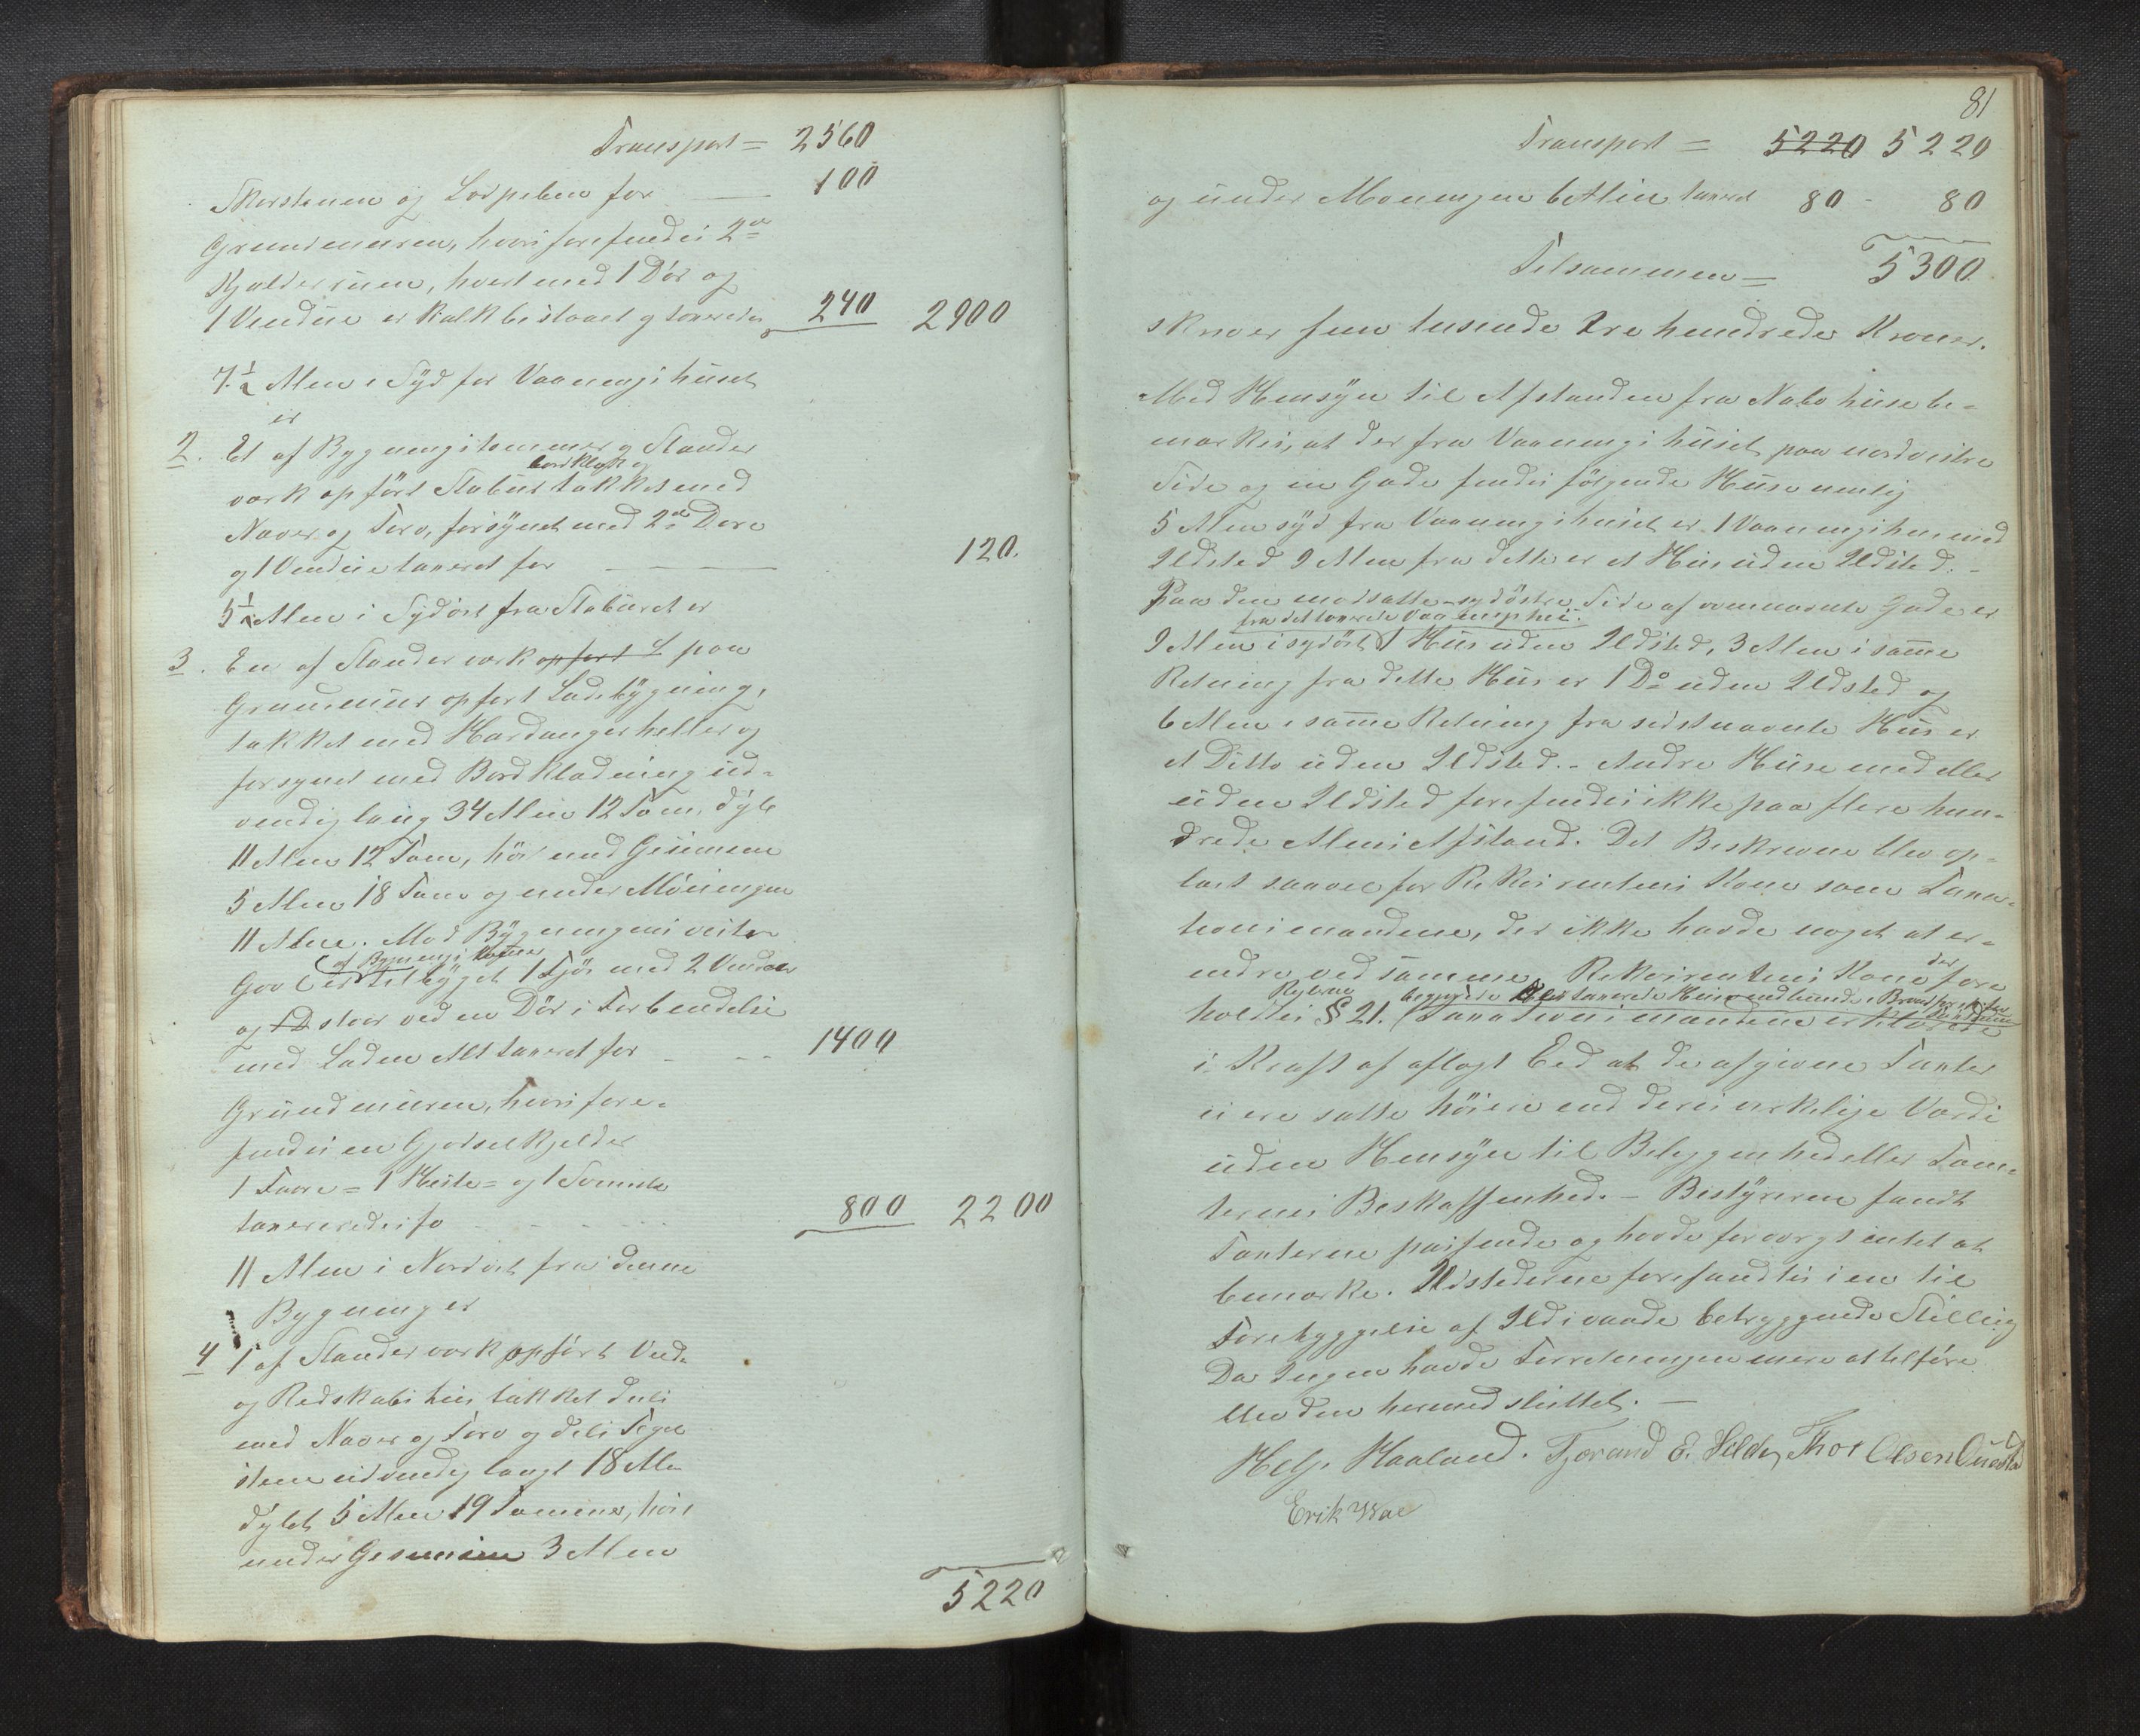 Transport = 2560
Skorstenen og Lodpiben for 100
Grundmuren, hvori forefindes 2de
Kjelderrum, hvert med 1 Dør og
1 Vindue er kalkbeslaaet og taxeres 240 2900
7 1/2 Alen i Syd for Vaaningshuset
er
2. Et af Bygningstømmer og Stander
værk opført Stabur bordklædt og takket med
Næver og Torv, forsynet med 2de Døre
og 1 Vindue taxeret for 120.
5 1/2 Alen i Sydost fra Staburet er
3. En af Standerværk opført L paa
Grundmuur opført Ladebygning,
takket med Hardangerheller og
forsynet med Bordklædning ud-
vendig lang 34 Alen 12 Tom, dyb
11 Alen 12 Tom, høi und Gesimsen
5 Alen 18 Tom og under Møningen
11 Alen. Mod Bygningens vestre
Gavl er af Bygningstømmer tilbygget 1 Fjøs med 2 Vinduer
og 1 D staar ved en Dør i Forbindelse
med Laden Alt taxeret for 1400
Grundmuren, hvori fore-
findes en Gjødselkjelder
1 Faare = 1 Heste = og 1 Svinesti
taxereredes fo 800 2200
11 Alen i Nordost fra denne
Bygning er
4 1 af Standerværk opført Ved-
og Redskabshus, takket dels
med Næver og Torv og dels Tegel
sten udvendig langt 18 Ale
dybt 5 Alen 19 Tommer, høit
under Gesimsen 3 Alen
5220
81
Transport = 5220 5220
og under Møningen 6 Alen taxeret 80 - 80
Tilsammen = 5300
skriver fem tusinde tre hundrede Kroner.
Med Hensyn til Afstanden fra Nabohuse be-
mærkes, at der fra Vaaningshuset paa nordvestre
Side og en Gade findes følgende Huse nemlig
5 Alen syd fra Vaaningshuset er 1 Vaaningshus med
Ildsted 9 Alen fra dette er et Hus uden Ildsted. -
Paa den modsatte - sydøstre Side af ovennævnte Gade er
fra det taxerede Vaaningshus.
9 Alen i sydøst 1 Hus uden Ildsted, 3 Alen i samme
Retning fra dette Hus er 1 Do uden Ildsted og
6 Alen i samme Retning fra sidstnævnte Hus er
et Ditto uden Ildsted. - Andre Huse med eller
uden Ildsted forefindes ikke paa flere hun-
drede Alens Afstand. Det Beskrevne blev op-
læst saavel for Rekvirentens Kone som Taxa-
tionsmændene, der ikke havde noget at er-
indre ved samme. Rekvirentens Kone der fore
Reglerne begjærede de taxerede Huse indlemmede i Brandforsikrings
holdtes § 21. Taxationsmændene erklærede
i Kraft af aflagt Eed at de afgivne Taxter
ei ere satte høiere end deres virkelige Værdi
uden Hensyn til Beliggenhed eller Tom-
ternes Beskaffenhed. - Bestyreren fandt
Taxterne passende og havde forøvrigt intet at
bemærke. Ildstederne forefandtes i en til
Forebyggelse af Ildsvaade betryggende Stilling
Da Ingen havde Forretningen mere at tilføre
blev den hermed sluttet. -
Helje Haaland. Tjærand E. Selde, Thor Olsen
Erik Wae